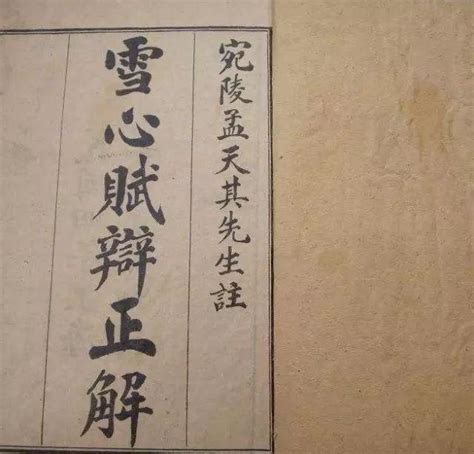 宛陵孟天其先生註
雪心賦辯正解